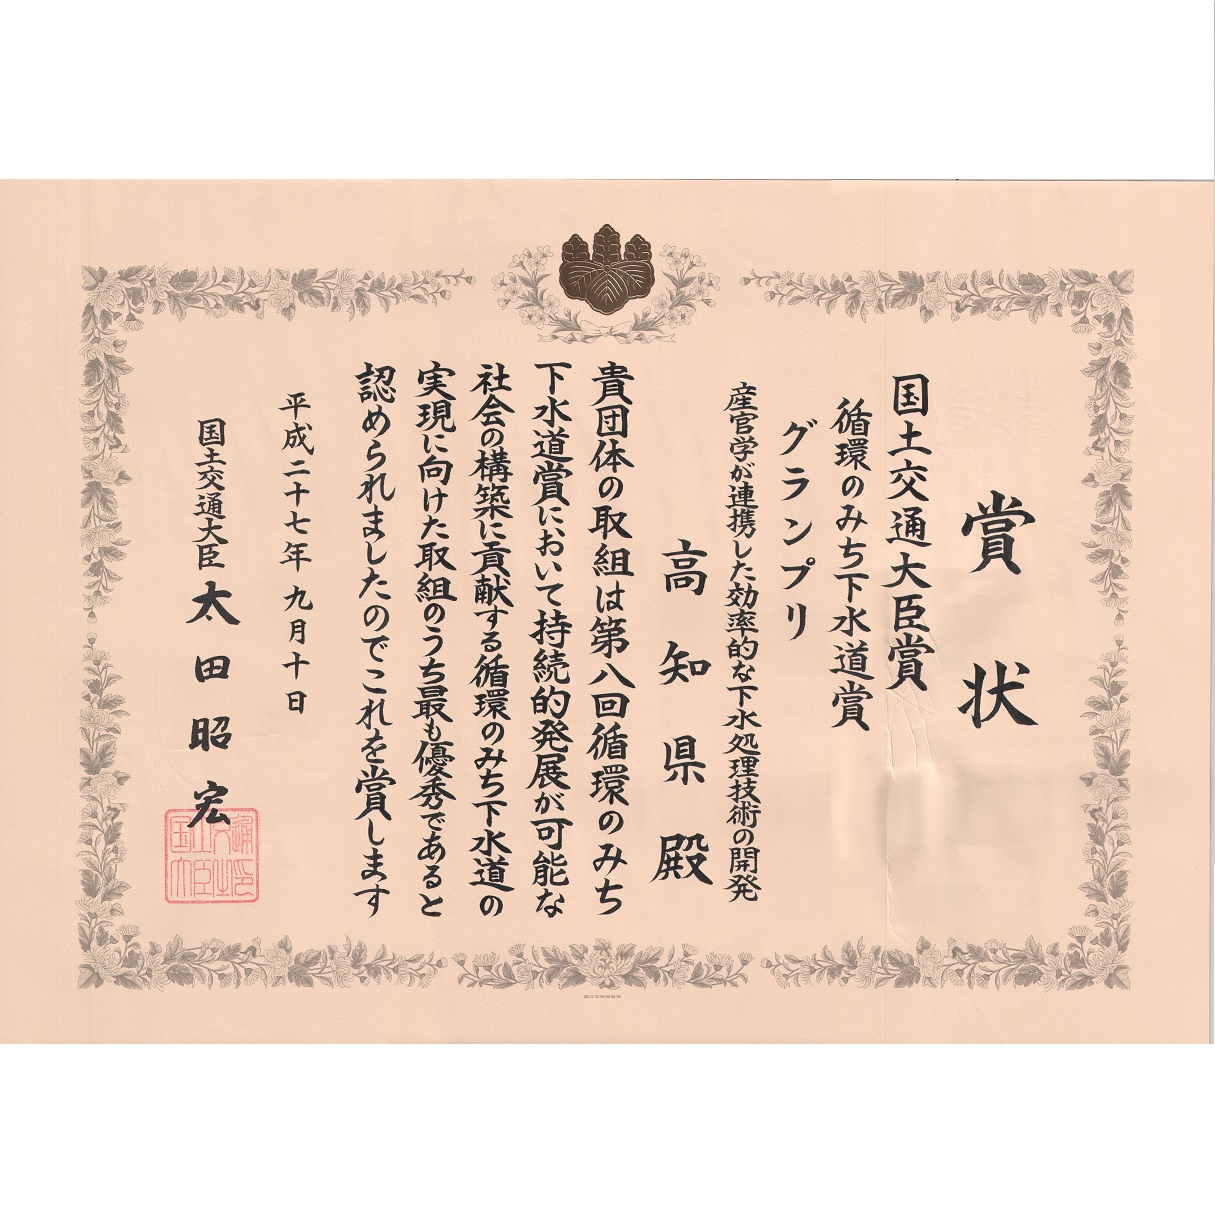 賞状
国土交通大臣賞
循環のみち下水道賞
グランプリ
産官学が連携した効率的な下水処理技術の開発
高知県殿
貴団体の取組は第八回循環のみち
下水道賞において持続的発展が可能な
社会の構築に貢献する循環のみち下水道の
実現に向けた取組のうち最も優秀であると
認められましたのでこれを賞します
平成二十七年九月十日
国土交通大臣 太田昭宏